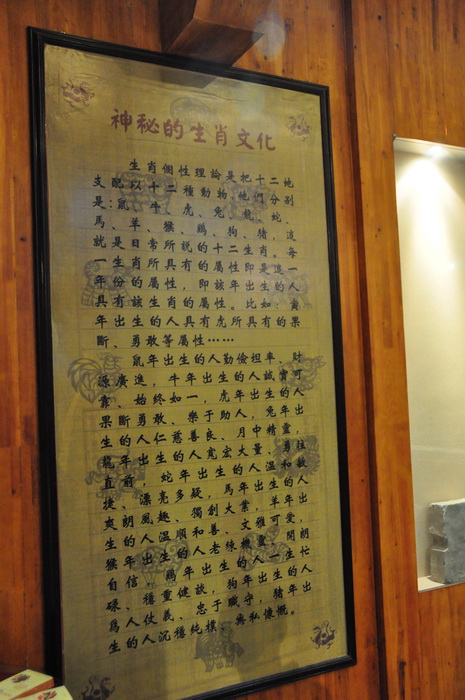 神秘的生肖文化
生肖個性理論是把十二地
支配以十二種動物,他們分别
是:鼠、牛、虎、兔、龍、蛇、
馬、羊、猴、鷄、狗、猪,這
就是日常所説的十二生肖。每
一生肖所具有的屬性即是這一
年份的屬性,即該年出生的人
具有該生肖的屬性。比如:寅
年出生的人具有虎所具有的果
斷、勇敢等屬性……
鼠年出生的人勤儉坦率、財
源廣進,牛年出生的人誠實可
靠、始終如一,虎年出生的人
果斷勇敢、樂于助人,兔年出
生的人仁慈善良、月中精靈,
龍年出生的人寬宏大量、勇往
直前,蛇年出生的人温和敏
捷、漂亮多疑,馬年出生的人
爽朗風趣、獨創大業,羊年出
生的人温順和善、文雅可愛,
猴年出生的人老練機靈、開朗
自信,鷄年出生的人一生忙
碌、穩重健談,狗年出生的人
爲人仗義、忠于職守,猪年出
生的人沉穩純樸、無私慷慨。